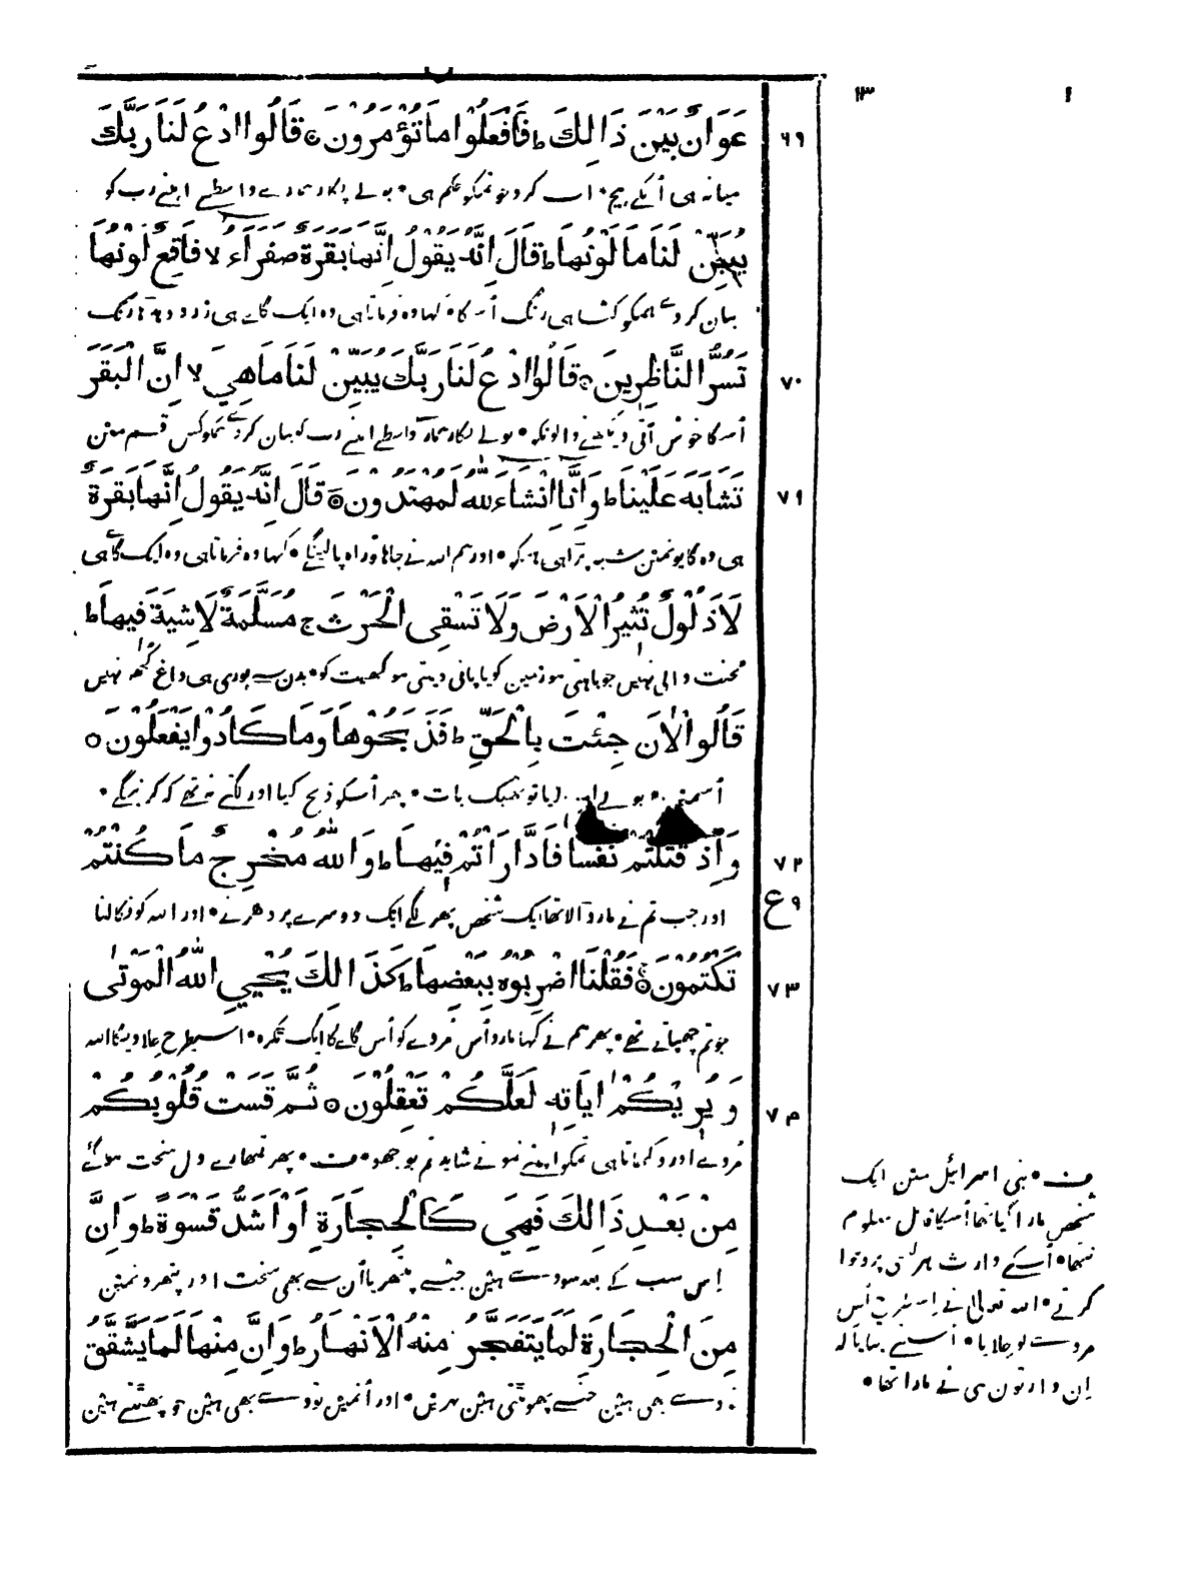 ١٣ ١
عَوَانٌ بَيْنَ ذَالِكَ ط فَافْعَلُوْا مَا تُؤْمَرُوْنَ ۝ قَالُوا ادْعُ لَنَا رَبَّكَ ٦٩
میانہ ہی اُنکے بیچ • اب کرو جو تمکو حکم ہی • بولے پکار ہمارے واسطے اپنے رب کو
يُبَيِّنْ لَنَا مَا لَوْنُهَا ط قَالَ اِنَّهُ يَقُوْلُ اِنَّهَا بَقَرَةٌ صَفْرَآءُ لا فَاقِعٌ لَوْنُهَا
بیان کردے ہمکو کیسا ہی رنگ اُسکا • کہا وہ فرماتا ہی وہ ایک گاے ہی زرد رنگ
تَسُرُّ النَّاظِرِينَ ۝ قَالُوا ادْعُ لَنَا رَبَّكَ يُبَيِّنْ لَنَا مَا هِيَ لا اِنَّ الْبَقَرَ ٧٠
اُسکا خوش آتی دیکھنے والونکو • بولے پکار ہمارے واسطے اپنے رب کو بیان کردے ہمکو کس قسم مین
تَشَابَهَ عَلَيْنَا ط وَاِنَّا اِنْشَاءَ اللهُ لَمُهْتَدُوْنَ ۝ قَالَ اِنَّهُ يَقُوْلُ اِنَّهَا بَقَرَةٌ ٧١
ہی وہ گایونمین شبہ پڑا ہی ہمکو • اور ہم اللہ نے چاہا تو راہ پالینگے • کہا وہ فرماتا ہی وہ ایک گاے ہی
لَا ذَلُوْلٌ تُثِيْرُ الْاَرْضَ وَلَا تَسْقِى الْحَرْثَ ج مُسَلَّمَةٌ لَاشِيَةَ فِيهَا ط
محنت والی نہین جو باہتی ہو زمین کو یا پانی دیتی ہو کھیت کو • بدن سے پوری ہی داغ کچھ نہین
قَالُوا الْاٰنَ جِئْتَ بِالْحَقِّ ط فَذَبَحُوْهَا وَمَا كَادُوْا يَفْعَلُوْنَ ۝
اُسمین • بولے اب لایا تو ٹھیک بات • پھر اُسکو ذبح کیا اور لگتے نہ تھے کہ کرینگے •
وَاِذْ قَتَلْتُمْ نَفْسًا فَادَّارَاْتُمْ فِيْهَا ط وَاللهُ مُخْرِجٌ مَا كُنْتُمْ ٧٢
اور جب تم نے مار ڈالا تھا ایک شخص پھر لگے ایک دوسرے پر دھرنے • اور اللہ کو نکالنا ع ٩
تَكْتُمُوْنَ ۝ فَقُلْنَا اضْرِبُوْهُ بِبَعْضِهَا ط كَذَالِكَ يُحْيِي اللهُ الْمَوْتٰى ٧٣
جو تم چھپاتے تھے • پھر ہم نے کہا مارو اُس مردے کو اُس گاے کا ایک ٹکڑہ • اسیطرح جلاویگا اللہ
وَيُرِيْكُمْ اٰيَاتِهٖ لَعَلَّكُمْ تَعْقِلُوْنَ ۝ ثُمَّ قَسَتْ قُلُوْبُكُمْ ٧٤
مردے اور دکھاتا ہی تمکو اپنے نمونے شاید تم بوجھو • ف • پھر تمھارے دل سخت ہوگئے
مِنْ بَعْدِ ذَالِكَ فَهِيَ كَالْحِجَارَةِ اَوْ اَشَدُّ قَسْوَةً ط وَاِنَّ
اِس سب کے بعد سو وے ہین جیسے پتھر یا اُن سے بھی سخت اور پتھرونمین
مِنَ الْحِجَارَةِ لَمَا يَتَفَجَّرُ مِنْهُ الْاَنْهَارُ ط وَاِنَّ مِنْهَا لَمَا يَشَّقَّقُ
تو وے بھی ہین جنسے پھوٹتی ہین نہرین • اور اُنمین تو وے بھی ہین جو پھٹتے ہین
ف • بنی اسرائیل مین ایک
شخص مارا گیا تھا اُسکا قاتل معلوم
نتھا • اُسکے وارث ہر کسی پر دعوا
کرتے • اللہ تعالیٰ نے اِسطرح اُس
مردے کو جلایا • اُسنے بتایا کہ
اِن وارثون ہی نے مارا تھا •